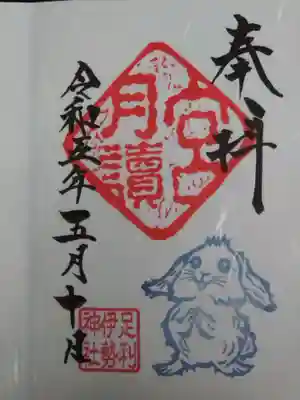 奉拝
月讀
宮
令和五年五月十日
足利
伊勢
神社